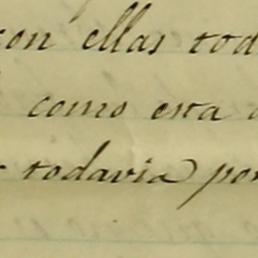 con ellas tod
como esta
todavia por